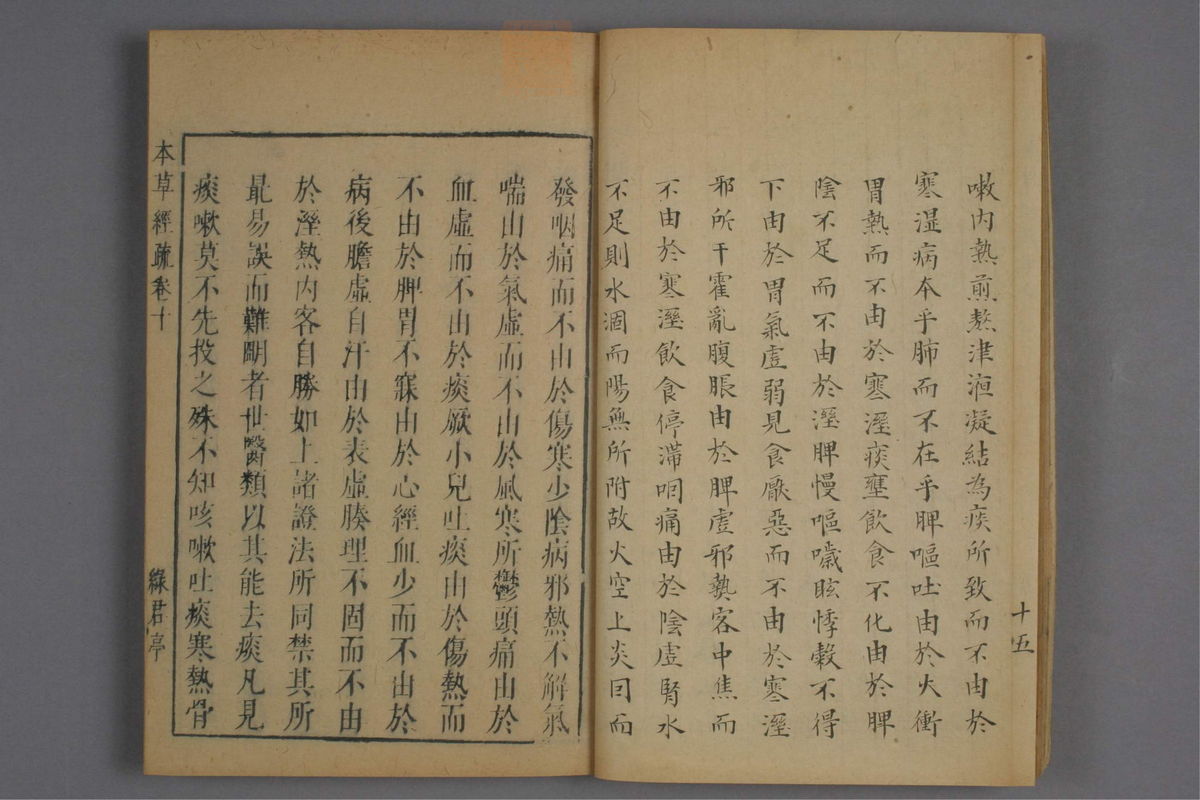 嗽内熱煎熬津液凝結為痰所致而不由於
寒湿病本乎肺而不在乎脾嘔吐由於火衝
胃熱而不由於寒溼痰壅飲食不化由於脾
陰不足而不由於溼脾慢嘔噦眩悸榖不得
下由於胃氣虚弱見食厭惡而不由於寒溼
邪所干霍亂腹脹由於脾虚邪𤍠客中焦而
不由於寒溼飲食停滯咽痛由於陰虚腎水
不足則水涸而陽無所附故火空上炎因而
十五
發咽痛而不由於傷寒少陰病邪熱不解氣
喘由於氣虛而不由於風寒所鬱頭痛由於
血虛而不由於痰厥小兒吐痰由於傷熱而
不由於脾胃不寐由於心經血少而不由於
病後膽虛自汗由於表虛腠理不固而不由
於溼熱内客自勝如上諸證法所同禁其所
最易誤而難明者世醫類以其能去痰凡見
痰嗽莫不先投之殊不知咳嗽吐痰寒熱骨
本草經疏卷十
綠君亭